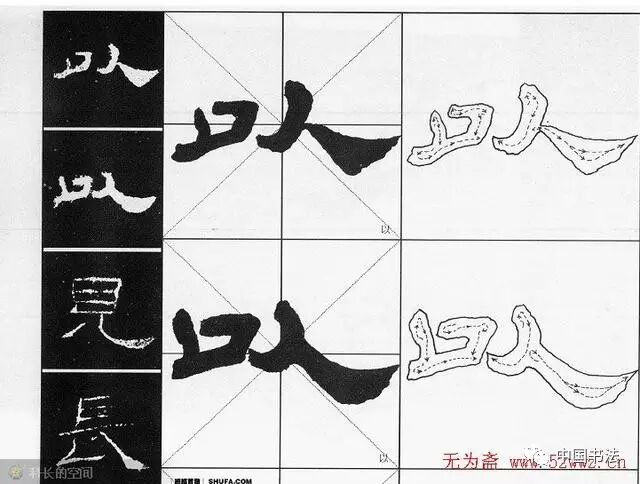 以
以
見
長
以
以
以
以
無为斋 www.52wwz.com
中国书法
科长的空间
SHUFA.COM